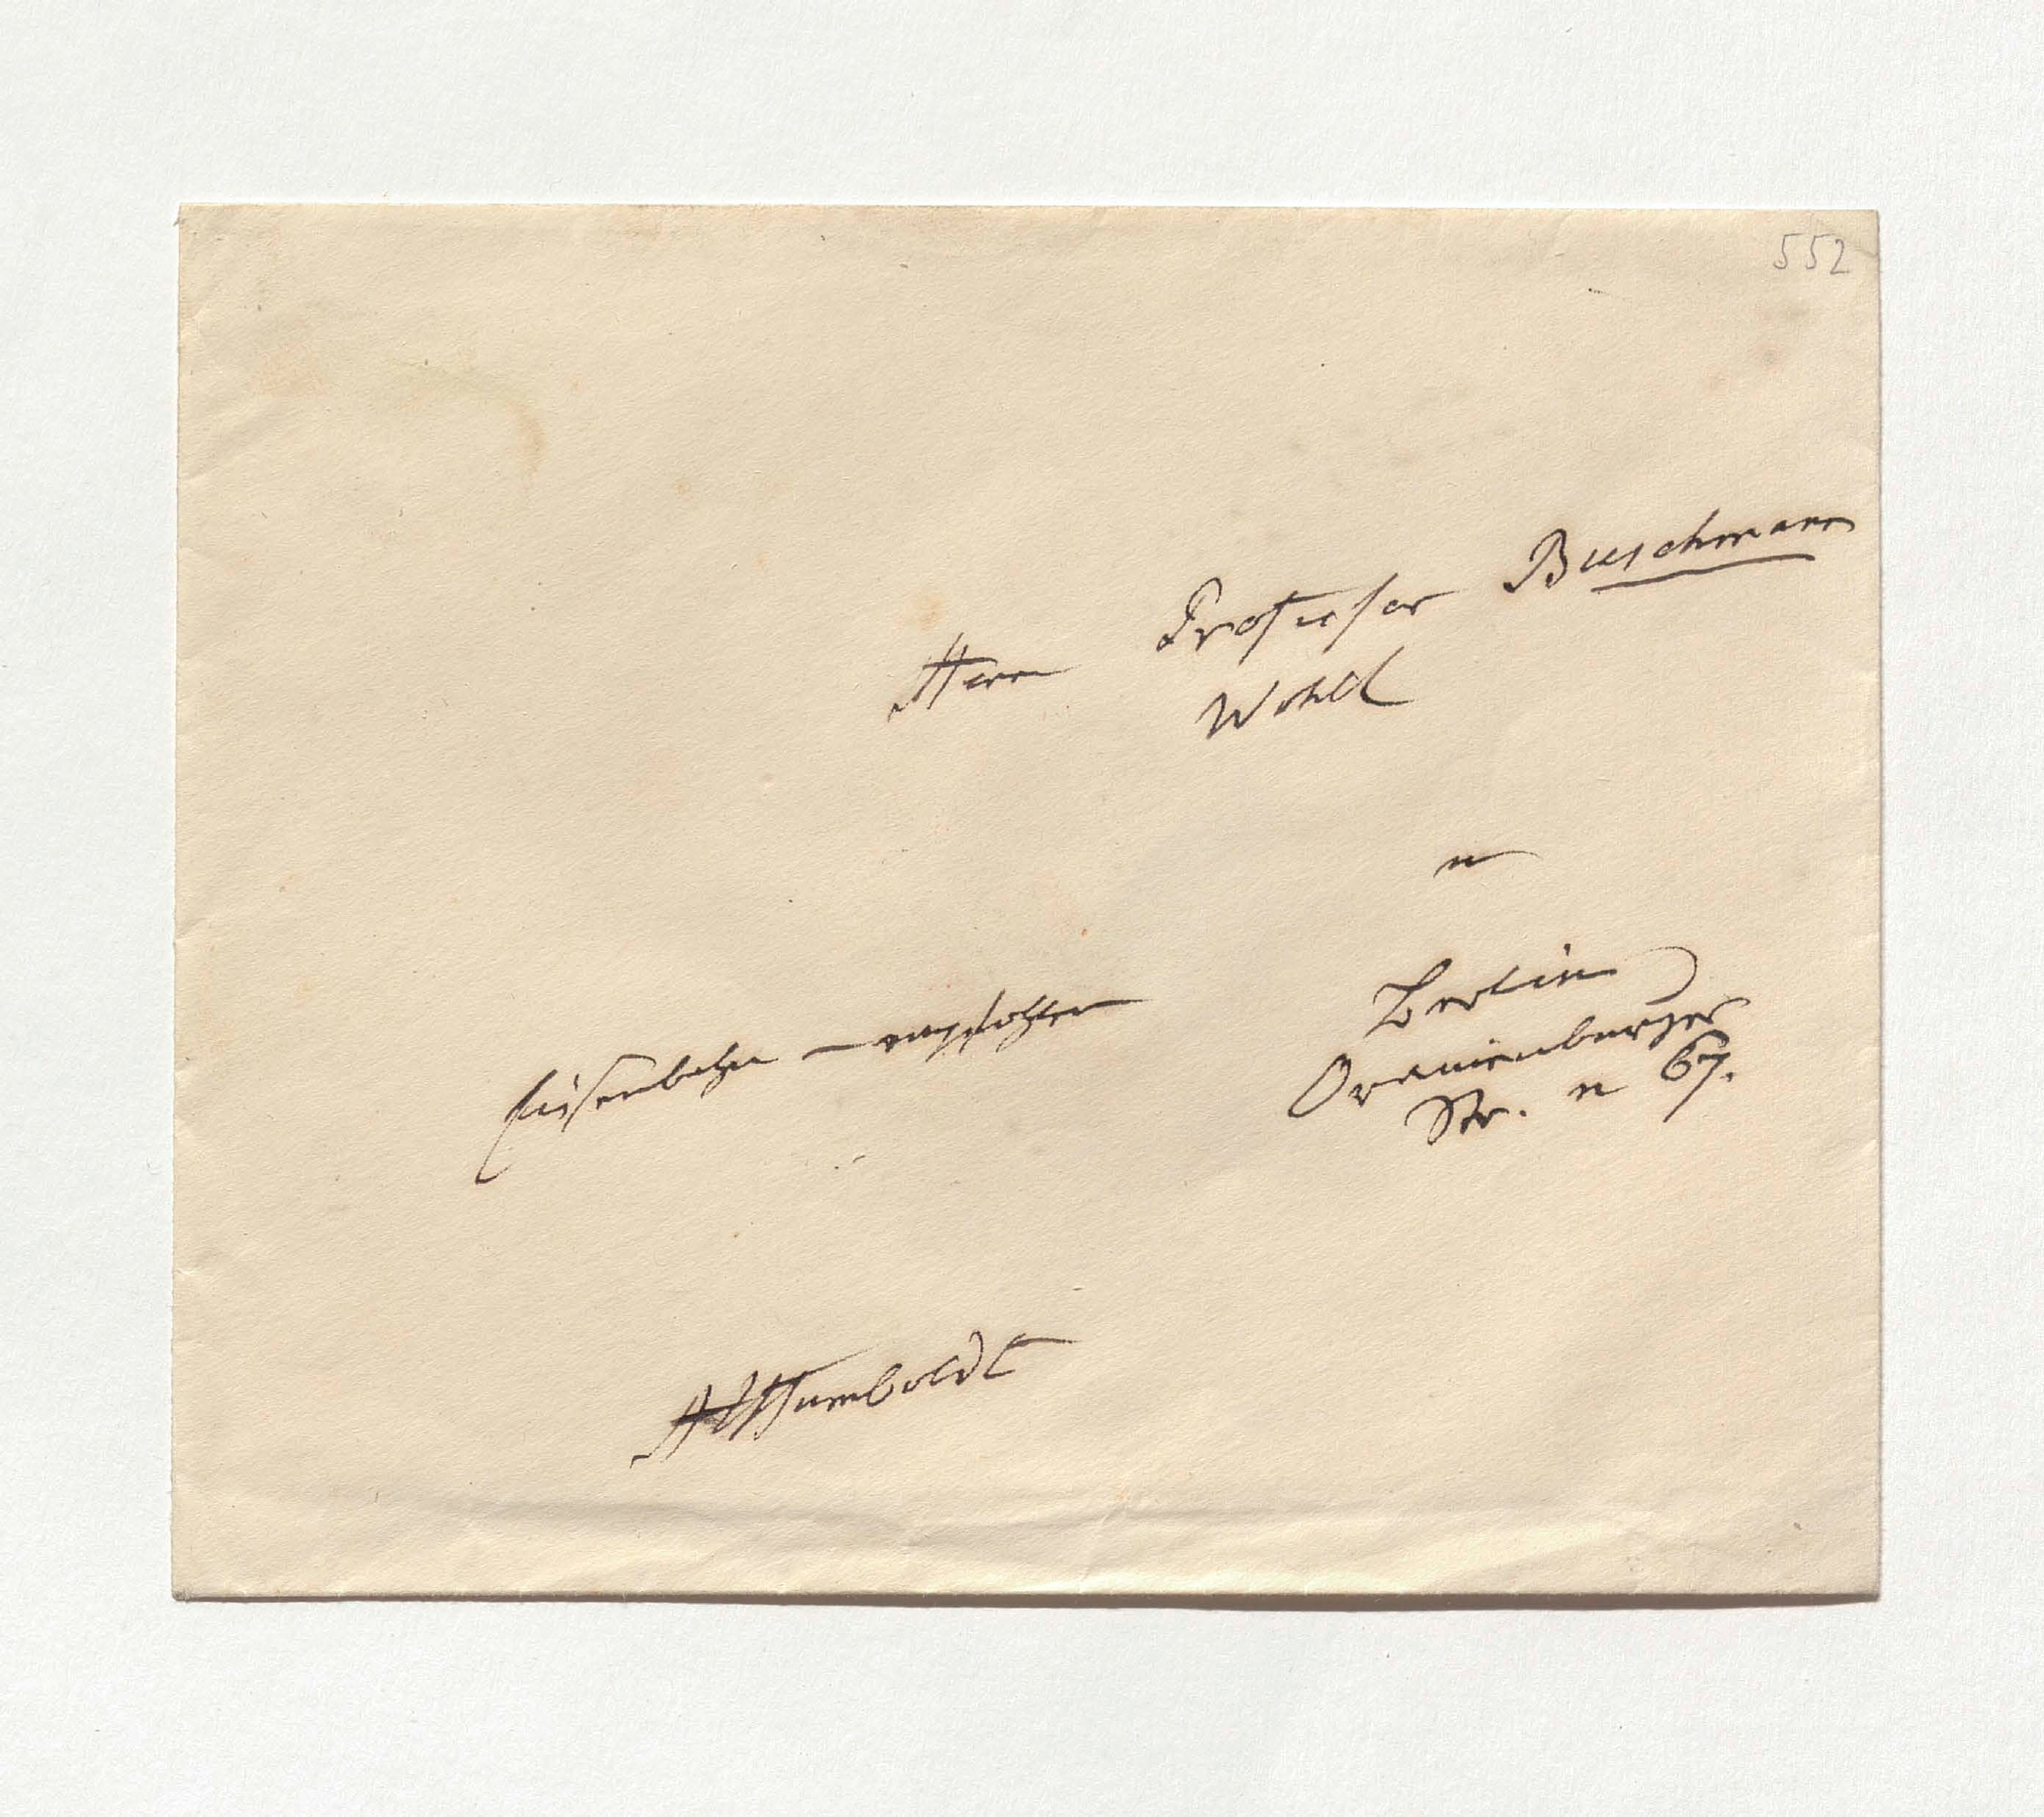 552
Herrn Professor Buschmann
Wohl
in
Berlin
Oranienburger
Str. n 67.
Eisenbahn – empfohlen
AvHumboldt